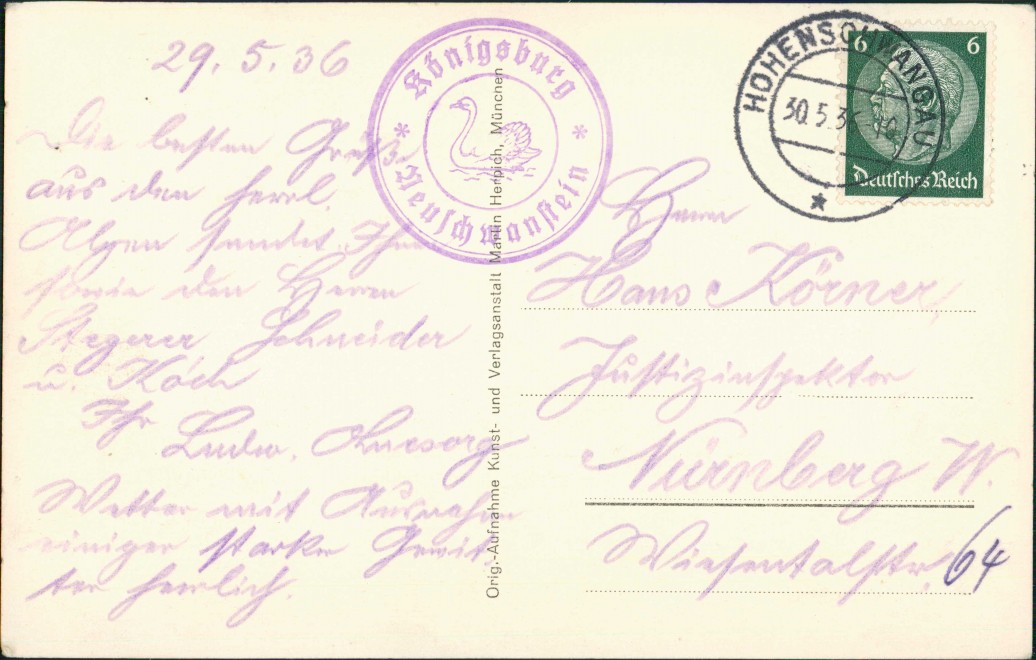 29. 5. 36
Die besten Grüße
aus den herrl.
Alpen sendet Ihnen
sowie den Herren
Stegerer Schneider
u. Koch
Ihr
Ludw.
Wetter mit Ausnahme
einiger starker Gewit-
ter herrlich.
Königsburg
* Neuschwanstein *
Orig.-Aufnahme Kunst- und Verlagsanstalt Martin Herpich, München
HOHENSCHWANGAU
30.5.36
6 6
Deutsches Reich
Herrn
Hans Körner,
Justizinspektor
Nürnberg W.
Wiesentalstr. 64